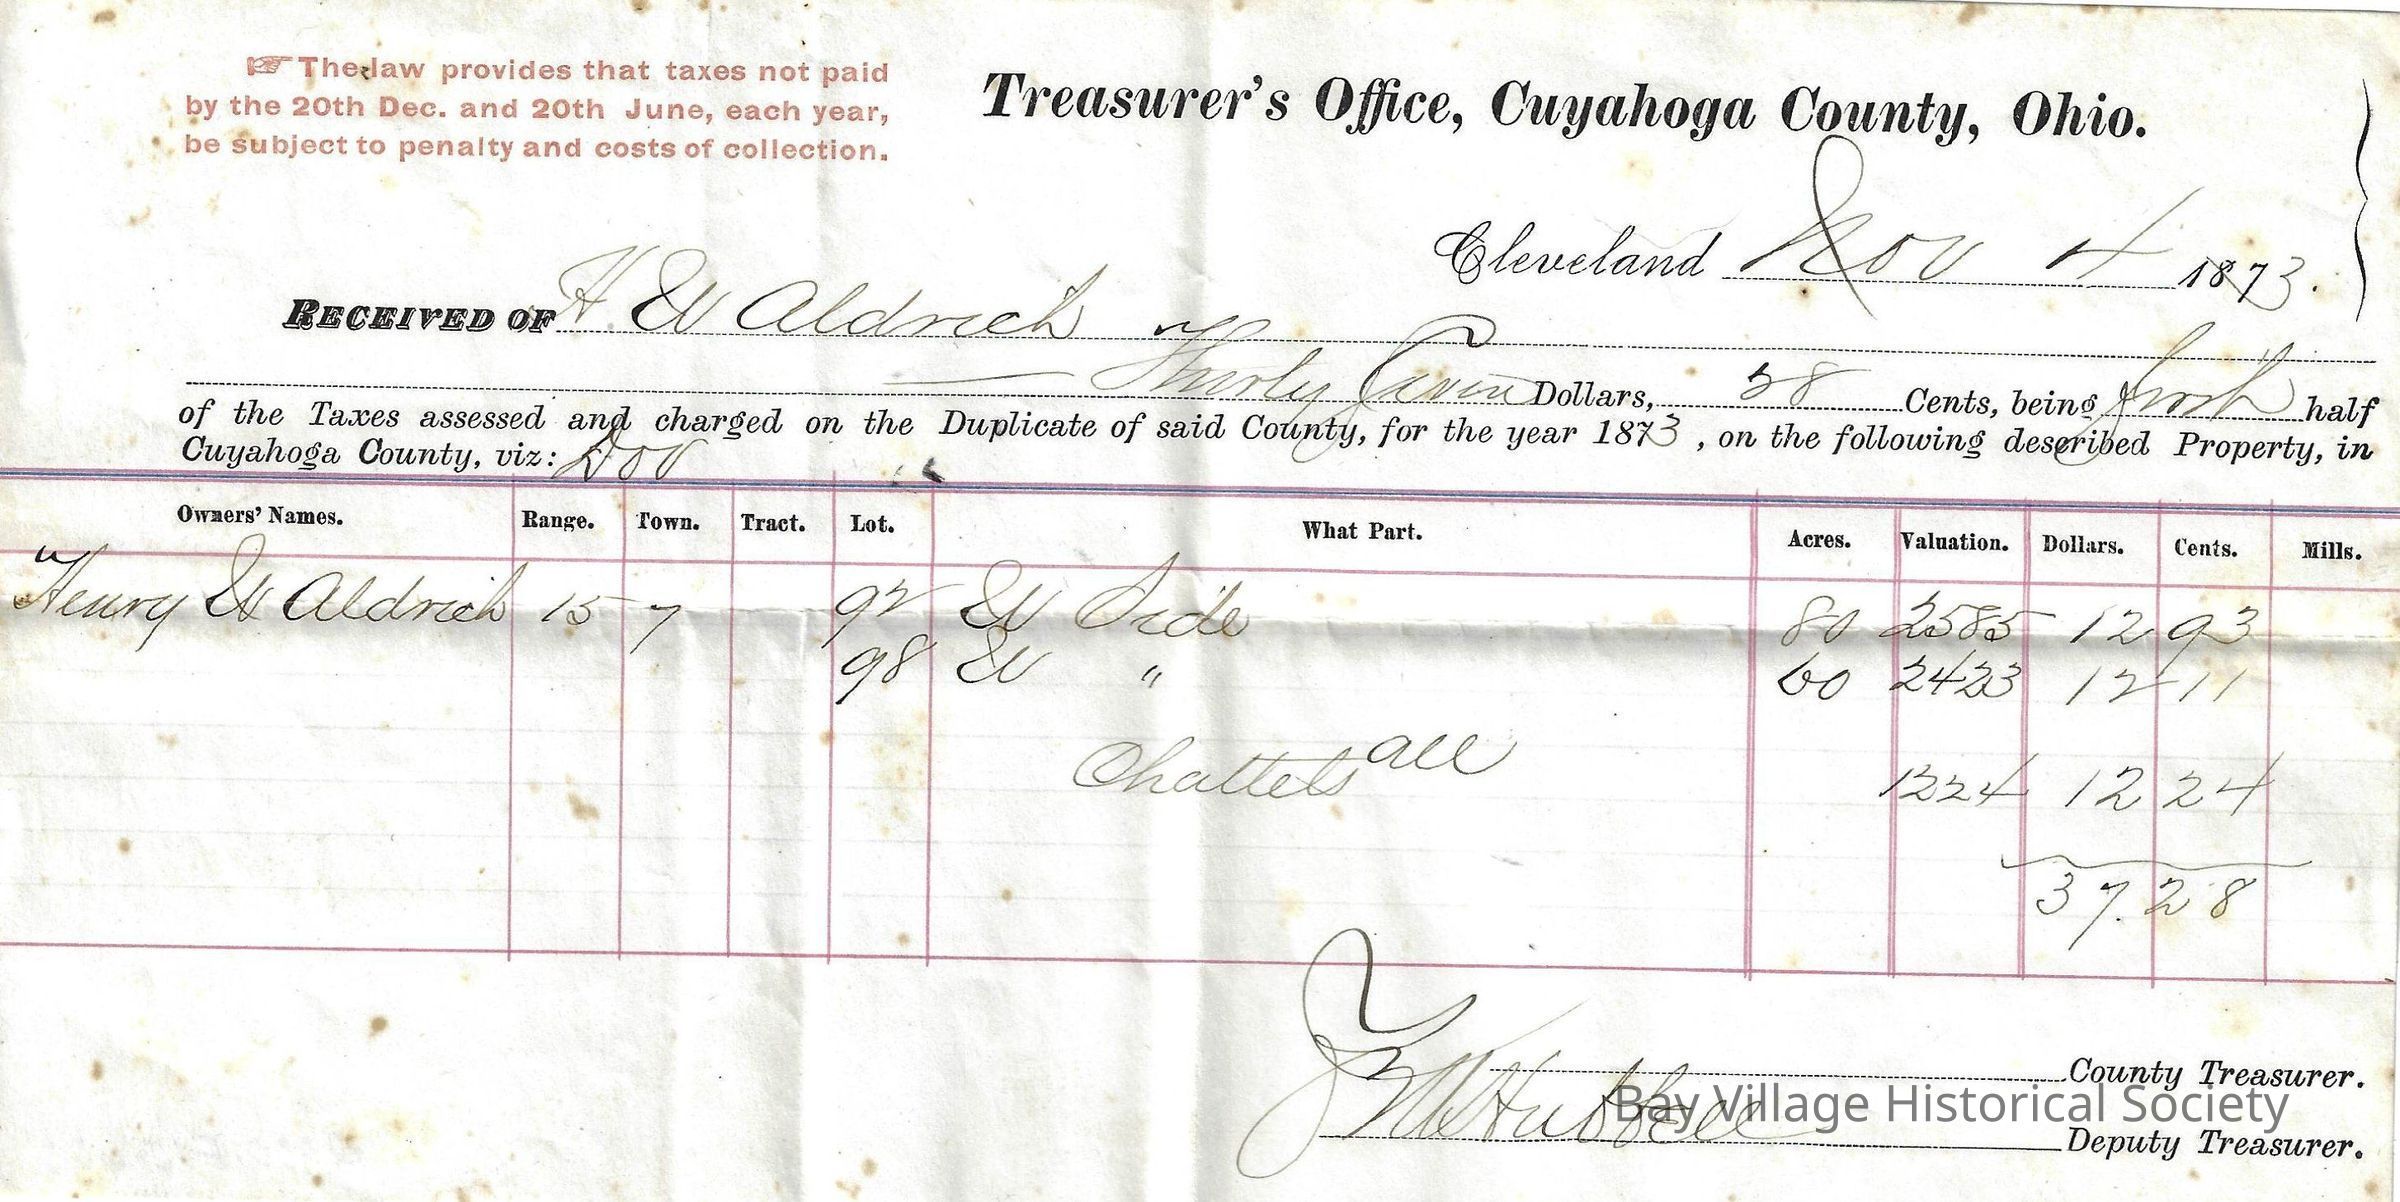 ☞ The law provides that taxes not paid
by the 20th Dec. and 20th June, each year,
be subject to penalty and costs of collection.
Treasurer's Office, Cuyahoga County, Ohio.
Cleveland Nov 4 1873.
RECEIVED OF H W Aldrich
Thirty Seven Dollars, 28 Cents, being first half
of the Taxes assessed and charged on the Duplicate of said County, for the year 1873, on the following described Property, in
Cuyahoga County, viz: Dov
Owners' Names. Range. Town. Tract. Lot. What Part. Acres. Valuation. Dollars. Cents. Mills.
Henry W Aldrich 15 7 92 W Side 80 2585 12 93
98 W " 60 2423 12 11
Chattels all 1224 12 24
37.28
County Treasurer.
Hubbell
Bay Village Historical Society
Deputy Treasurer.